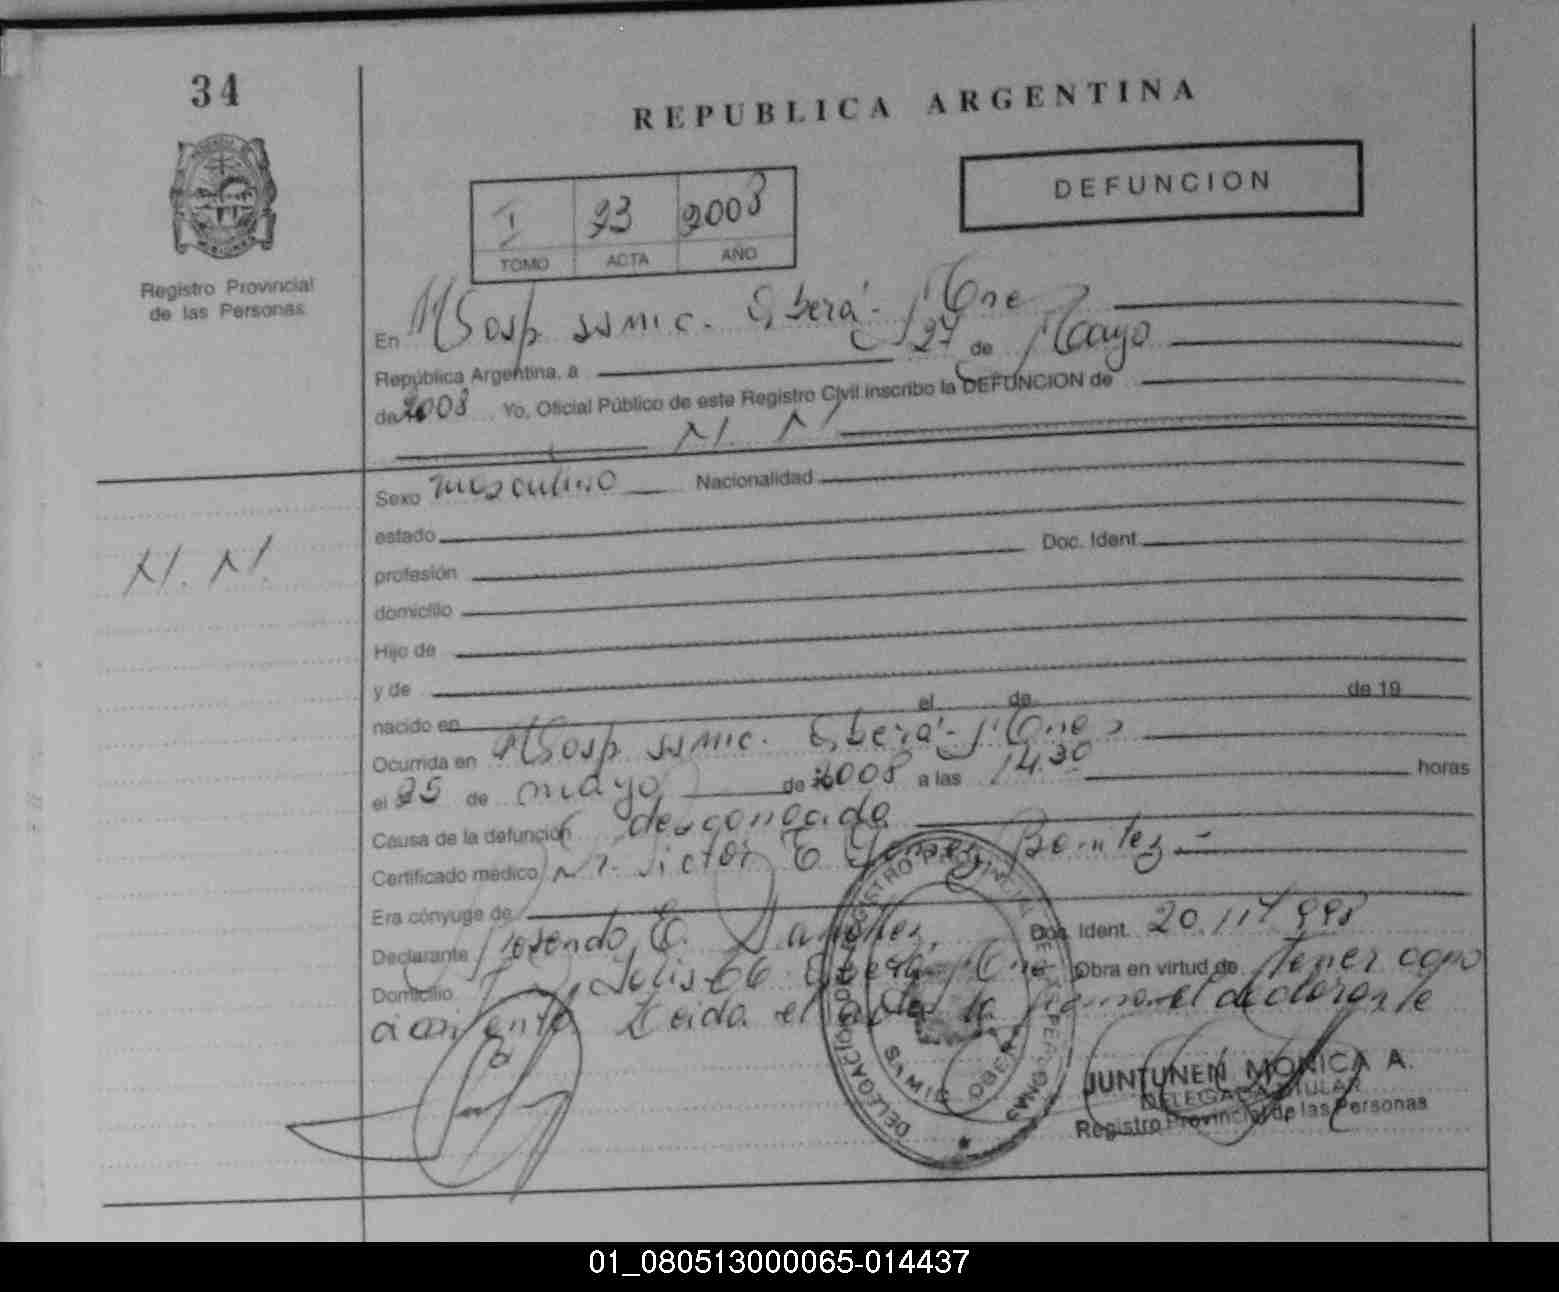 34
REPUBLICA ARGENTINA
DEFUNCION
I 93 2008
TOMO ACTA AÑO
Registro Provincial
de las Personas
En Hosp. SAMIC. Oberá - Mnes
República Argentina, a 27 de Mayo
de 2008 Yo, Oficial Público de este Registro Civil inscribo la DEFUNCION de
N. N.
Sexo masculino Nacionalidad
estado
N. N.
profesión Doc. Ident.
domicilio
Hijo de
y de
nacido en el de de 19
Ocurrida en Hosp. SAMIC. Oberá - Mnes
el 25 de mayo de 2008 a las 14.30 horas
Causa de la defunción desconocida
Certificado médico Dr. Victor E. Benitez -
Era cónyuge de
Declarante Rosendo E. Doc. Ident. 20.117.998
Domicilio Oberá Mnes Obra en virtud de tener cono
cimiento Leida el acta la firma el declarante
DELEGACION REGISTRO PROVINCIAL DE LAS PERSONAS
SAMIC OBERA
JUNTUNEN MONICA A.
DELEGADA TITULAR
Registro Provincial de las Personas
01_080513000065-014437